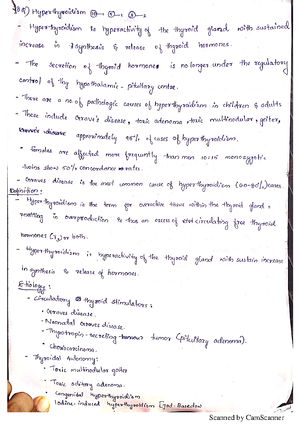 Hyperthyroidism
- Hyperthyroidism is hyperactivity of the thyroid gland with sustained
increase in synthesis & release of thyroid hormones.
- The secretion of thyroid hormones is no longer under the regulatory
control of thy hypothalamic - pituitary centre.
- There are a no of pathologic causes of hyperthyroidism in children & adults
- These include Grave's disease, toxic adenoma, toxic multinodular, goiter,
Graves disease approximately 95% of cases of hyperthyroidism.
- females are affected more frequently than men 10:15 monozygotic
twins show 50% concordance rates.
- Graves disease is the most common cause of hyperthyroidism (60-90%) cases.
Definition:-
- Hyperthyroidism is the term for overactive tissue within the thyroid gland
resulting in overproduction & thus an excess of circulating free thyroid
hormones or both.
- Hyperthyroidism is hyperactivity of the thyroid gland with sustain increase
In synthesis & release of hormones.
Etiology:
- Circulatory thyroid stimulators:
• Graves disease.
• Neonatal Graves disease.
• Thyrotropin - secreting tumor (pituitary adenoma).
• Choriocarcinoma.
- Thyroidal Autonomy:
• Toxic multinodular goiter
• Toxic solitary adenoma.
• Congenital hyperthyroidism
Iodine-induced hyperthyroidism [Jod-Basedow
Scanned by CamScanner